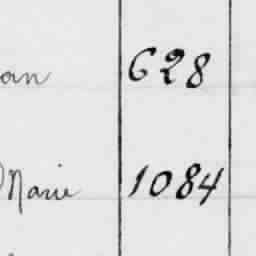 an 628
Marie 1084